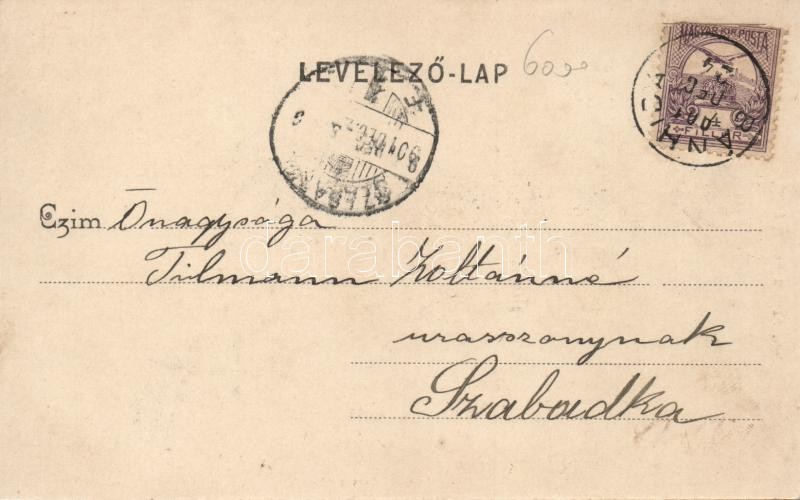 LEVELEZŐ-LAP
6000
MAGYAR KIR. POSTA
FILLÉR
901 DEC
Czim Őnagysága
Tilmann Zoltánné
urasszonynak
Szabadka
darabanth